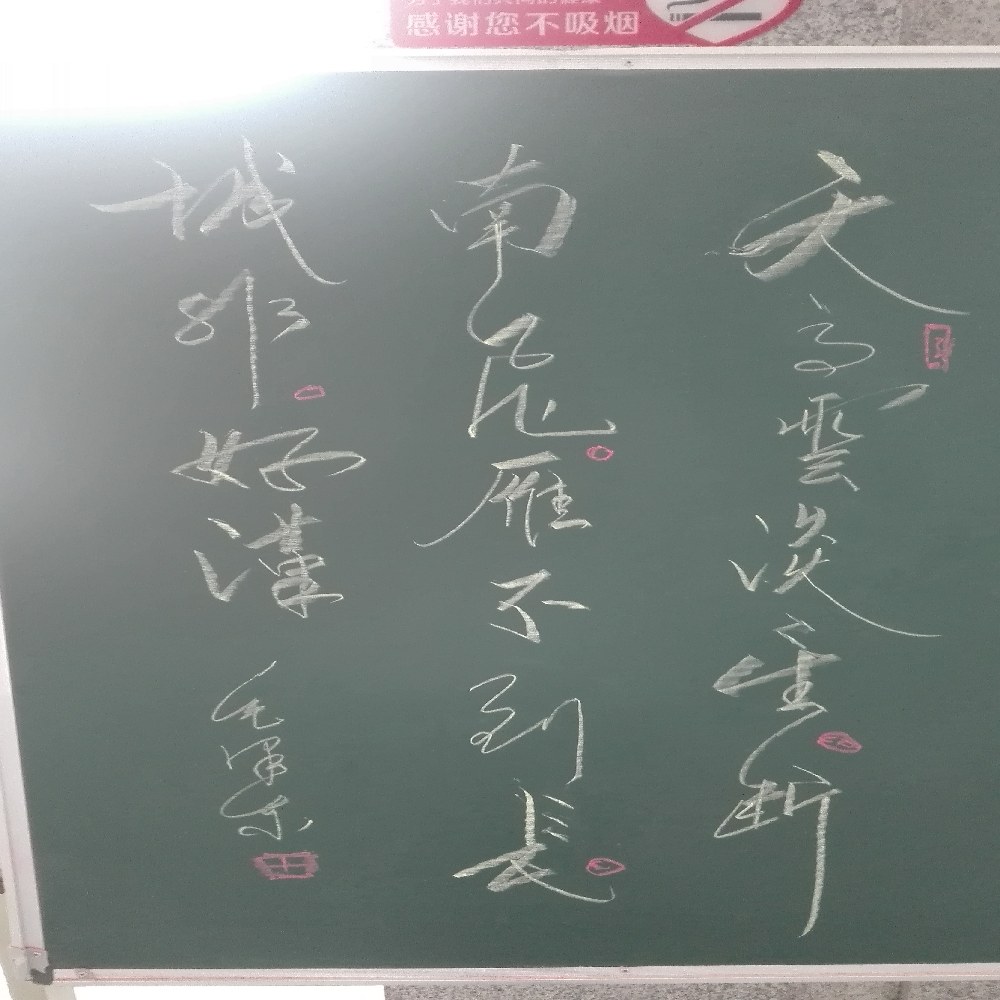 感谢您不吸烟
天高雲淡望断
南飛雁不到長
城非好漢
毛泽东